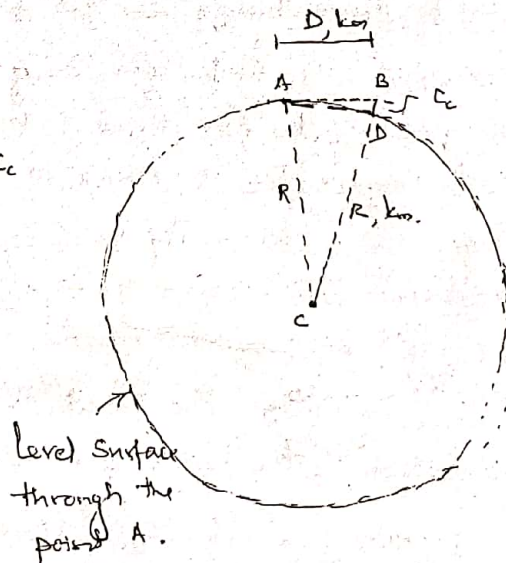 D, km
A
B
Cc
Cc
D
R
R, km.
C
Level Surface
through the
point A.